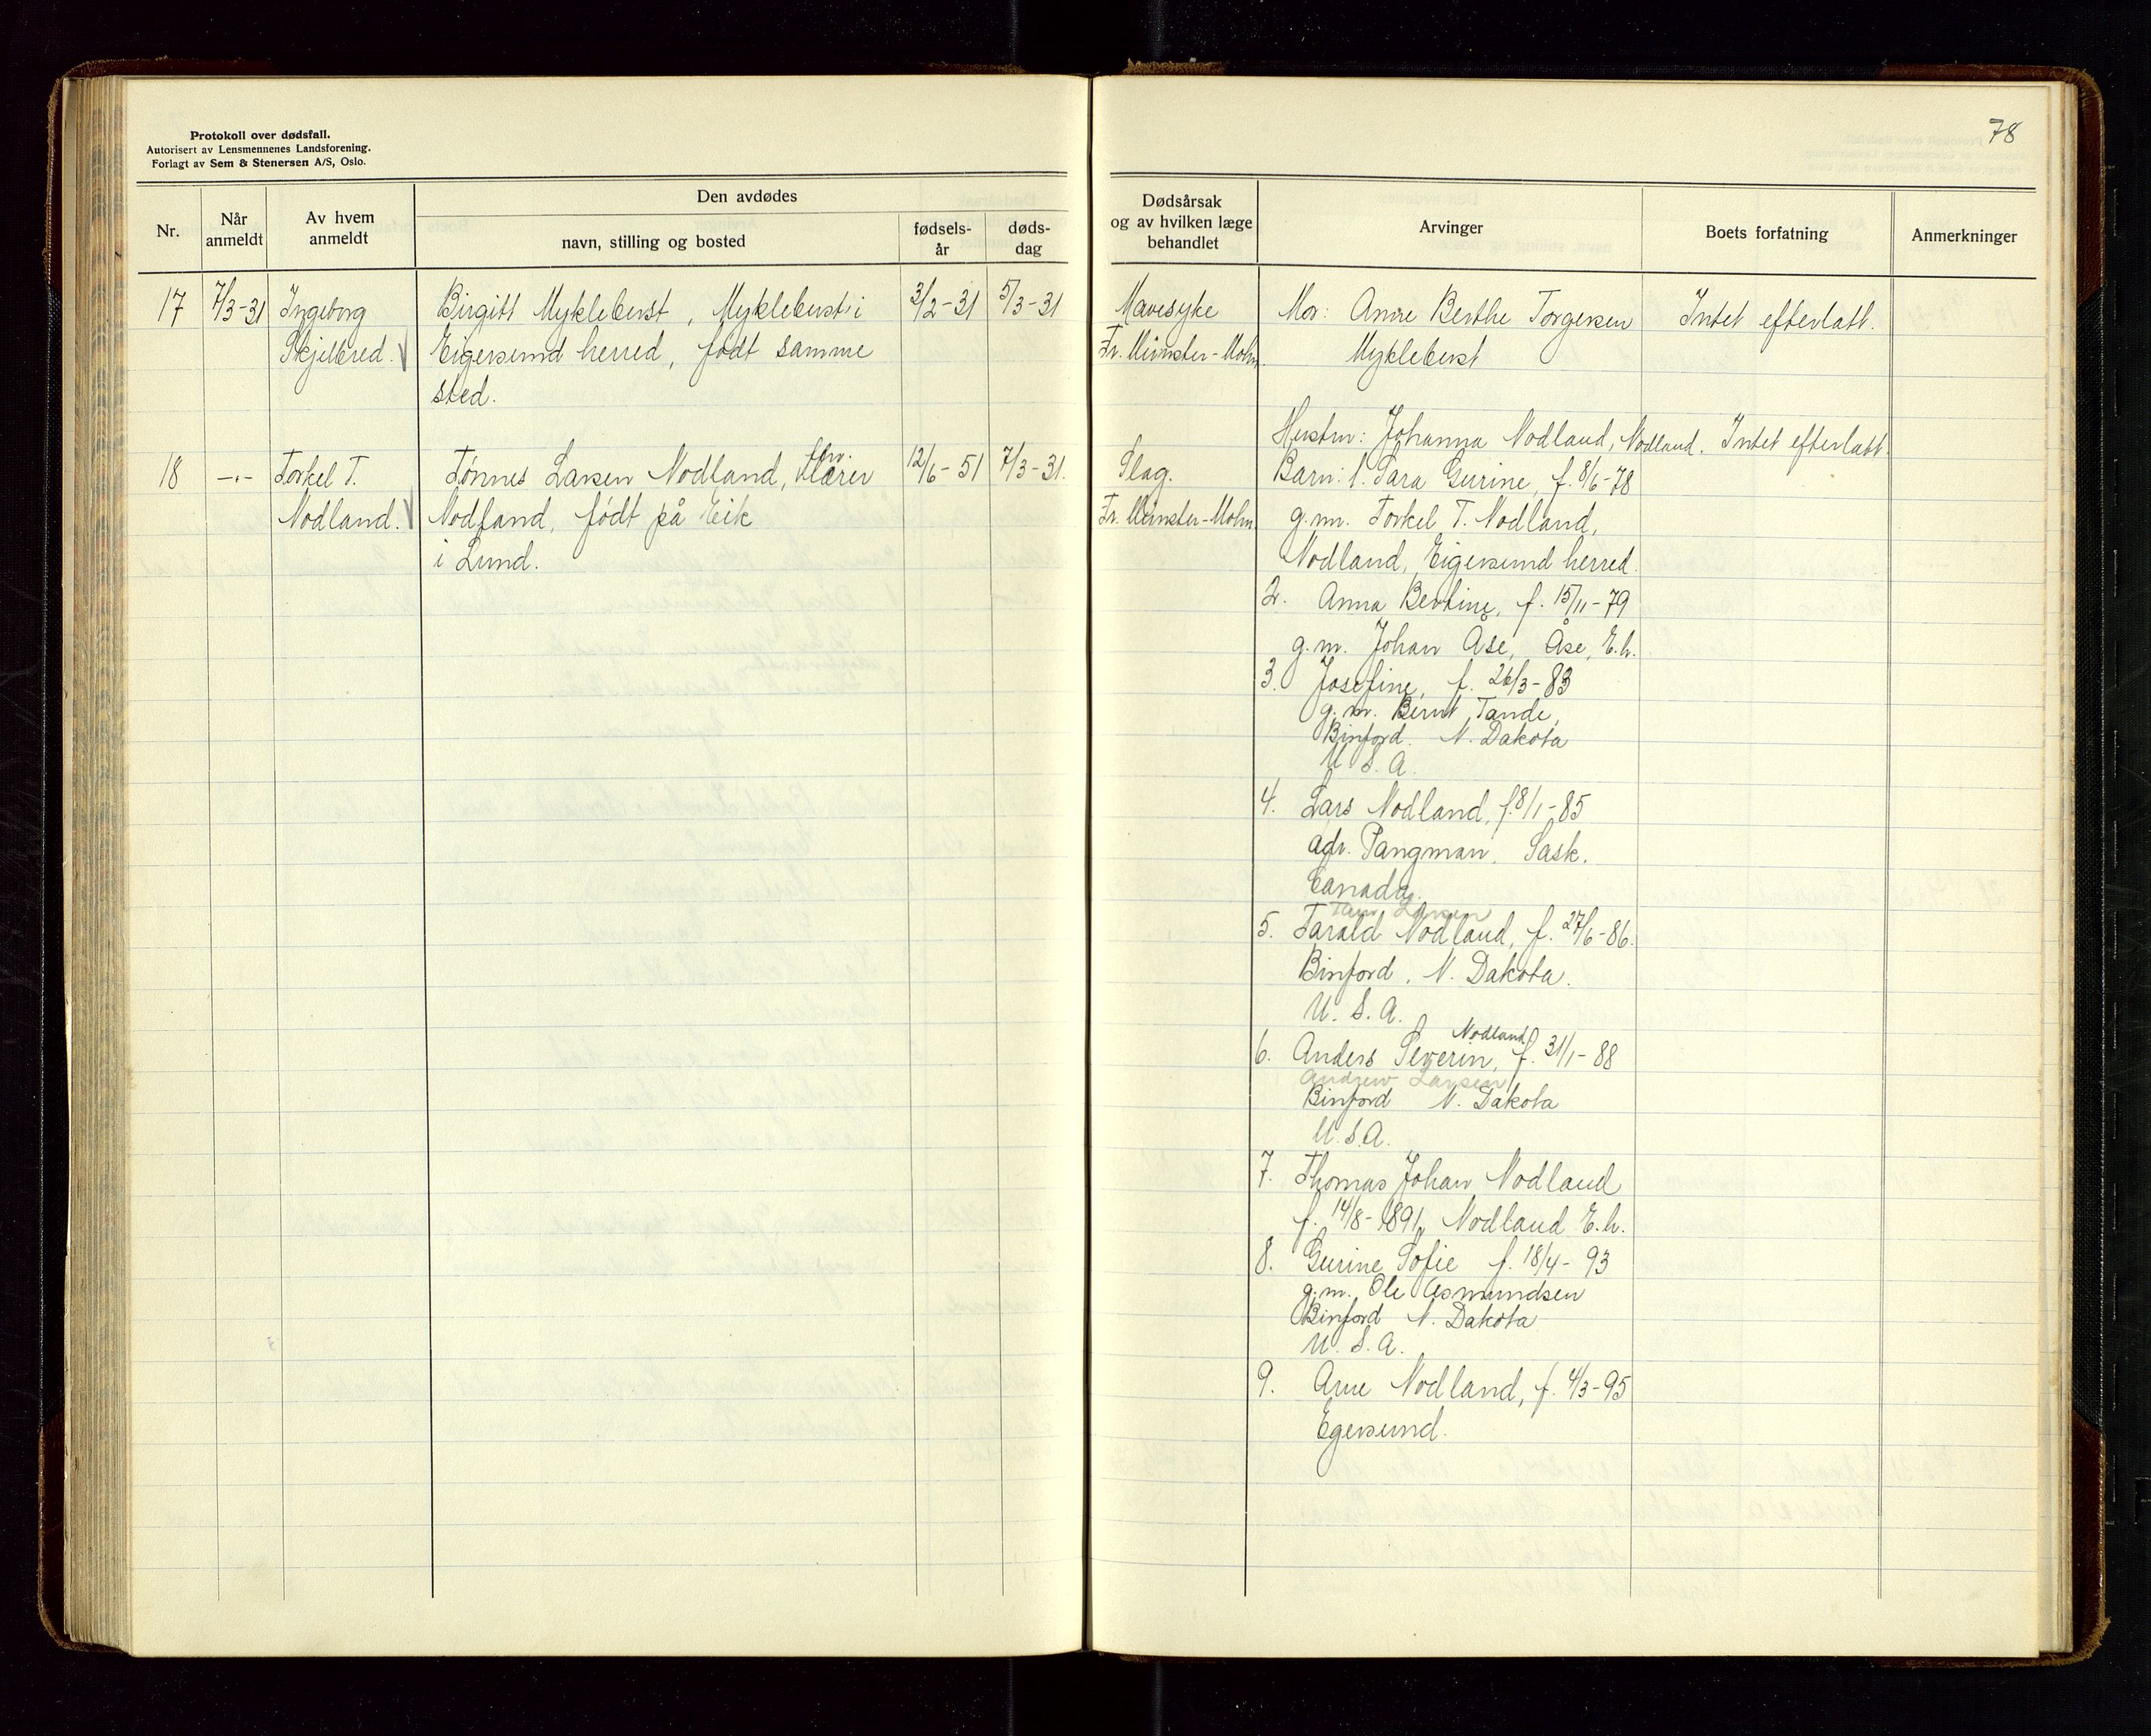 78
Protokoll over dødsfall.
Autorisert av Lensmennenes Landsforening.
Forlagt av Sem & Stenersen A/S, Oslo.
Nr.
Når anmeldt
Av hvem anmeldt
Den avdødes
navn, stilling og bosted
fødsels-år
døds-dag
Dødsårsak og av hvilken læge behandlet
Arvinger
Boets forfatning
Anmerkninger
17 7/3-31 Ingeborg Birgitt Myklebust, Myklebust i 3/2-31 5/3-31 Mavesyke Mor: Anne Berthe Torgersen Intet efterlatt.
Skjelbred. Eigersund herred, født samme Fr. Münster-Mohn. Myklebust
sted.
Hustru: Johanna Nodland, Nodland. Intet efterlatt.
18 -"- Torkel T. Tønnes Larsen Nodland, 12/6-51 7/3-31. Slag. Barn: 1. Sara Gurine, f. 8/6-78
Nodland. Nodland, født på Eik Fr. Münster-Mohn g.m. Torkel T. Nodland,
i Lund. Nodland, Eigersund herred.
2. Anna Bertine, f. 15/11-79
g.m. Johan Åse, Åse, E.h.
3. Josefine, f. 26/3-83
g.m. Bernt Tande,
Binford. N. Dakota
U. S. A.
4. Lars Nodland, f. 8/1-85
adr. Pangman, Sask.
Canada.
Larsen
5. Tarald Nodland, f. 27/6-86.
Binford. N. Dakota.
U. S. A.
Nodland
6. Anders Severin, f. 31/1-88
Andrew Larsen
Binford N. Dakota
U.S.A.
7. Thomas Johan Nodland
f. 14/8-1891, Nodland E.h.
8. Gurine Sofie f. 18/4-93
g.m. Ole Asmundsen
Binford N. Dakota
U. S. A.
9. Arne Nodland, f. 4/3-95
Egersund.